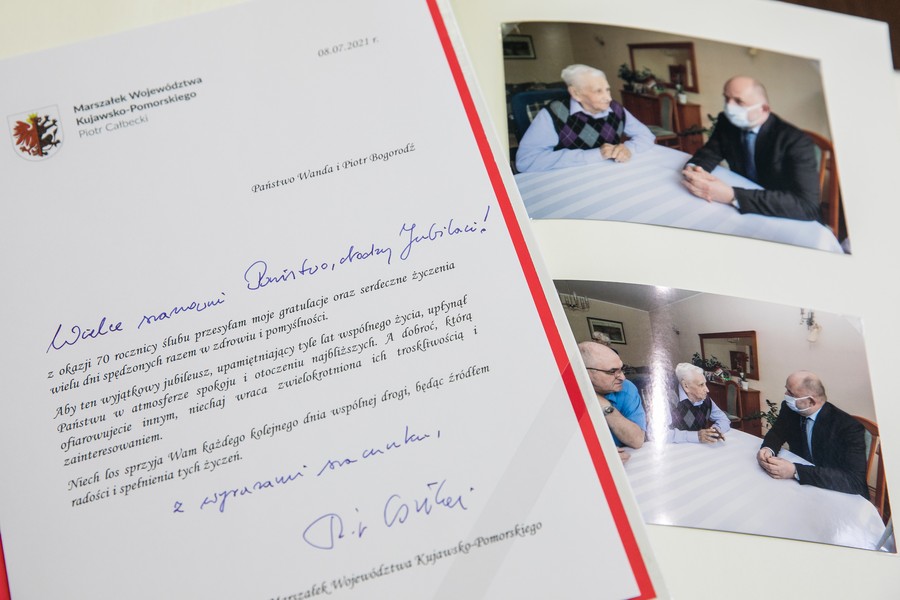 08.07.2021 r.
Marszałek Województwa
Kujawsko-Pomorskiego
Piotr Całbecki
Państwo Wanda i Piotr Bogorodź
Wielce szanowni Państwo, drodzy Jubilaci!
z okazji 70 rocznicy ślubu przesyłam moje gratulacje oraz serdeczne życzenia
wielu dni spędzonych razem w zdrowiu i pomyślności.
Aby ten wyjątkowy jubileusz, upamiętniający tyle lat wspólnego życia, upłynął
Państwu w atmosferze spokoju i otoczeniu najbliższych. A dobroć, którą
ofiarowujecie innym, niechaj wraca zwielokrotniona ich troskliwością i
zainteresowaniem.
Niech los sprzyja Wam każdego kolejnego dnia wspólnej drogi, będąc źródłem
radości i spełnienia tych życzeń.
z wyrazami szacunku,
Piotr Całbecki
Marszałek Województwa Kujawsko-Pomorskiego